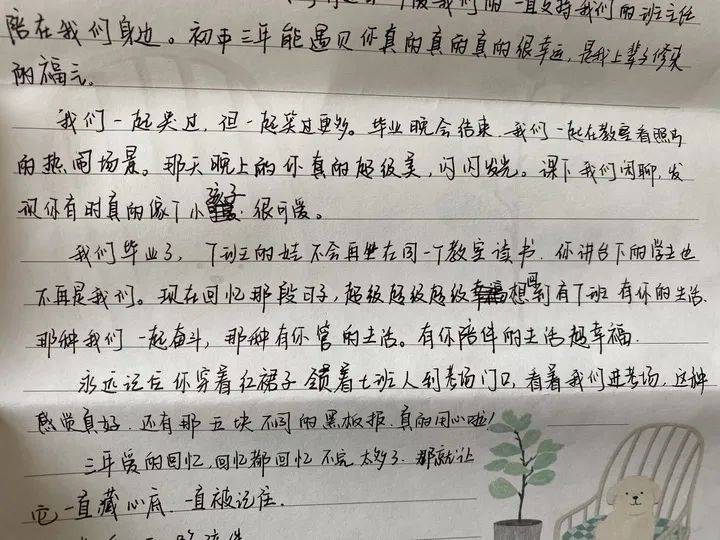 我们的一直支持我们的班主任
陪在我们身边。初中三年能遇见你真的真的真的很幸运,是我上辈子修来
的福气。
我们一起哭过,但一起笑过更多。毕业晚会结束,我们一起在教室看照片
的热闹场景。那天晚上的你真的超级美,闪闪发光。课下我们闲聊,发
现你有时真的像个小孩子,很可爱。
我们毕业了,7班的娃不会再坐在同一个教室读书,你讲台下的学生也
不再是我们。现在回忆那段日子,超级超级超级想回到有7班有你的生活,
那种我们一起奋斗,那种有你管的生活。有你陪伴的生活超幸福.
永远记住你穿着红裙子领着七班人到考场门口,看着我们进考场,这种
感觉真好.还有那五块不同的黑板报.真的用心啦!
三年爱的回忆,回忆都回忆不完太多了.那就让
它一直藏心底.一直被记住.